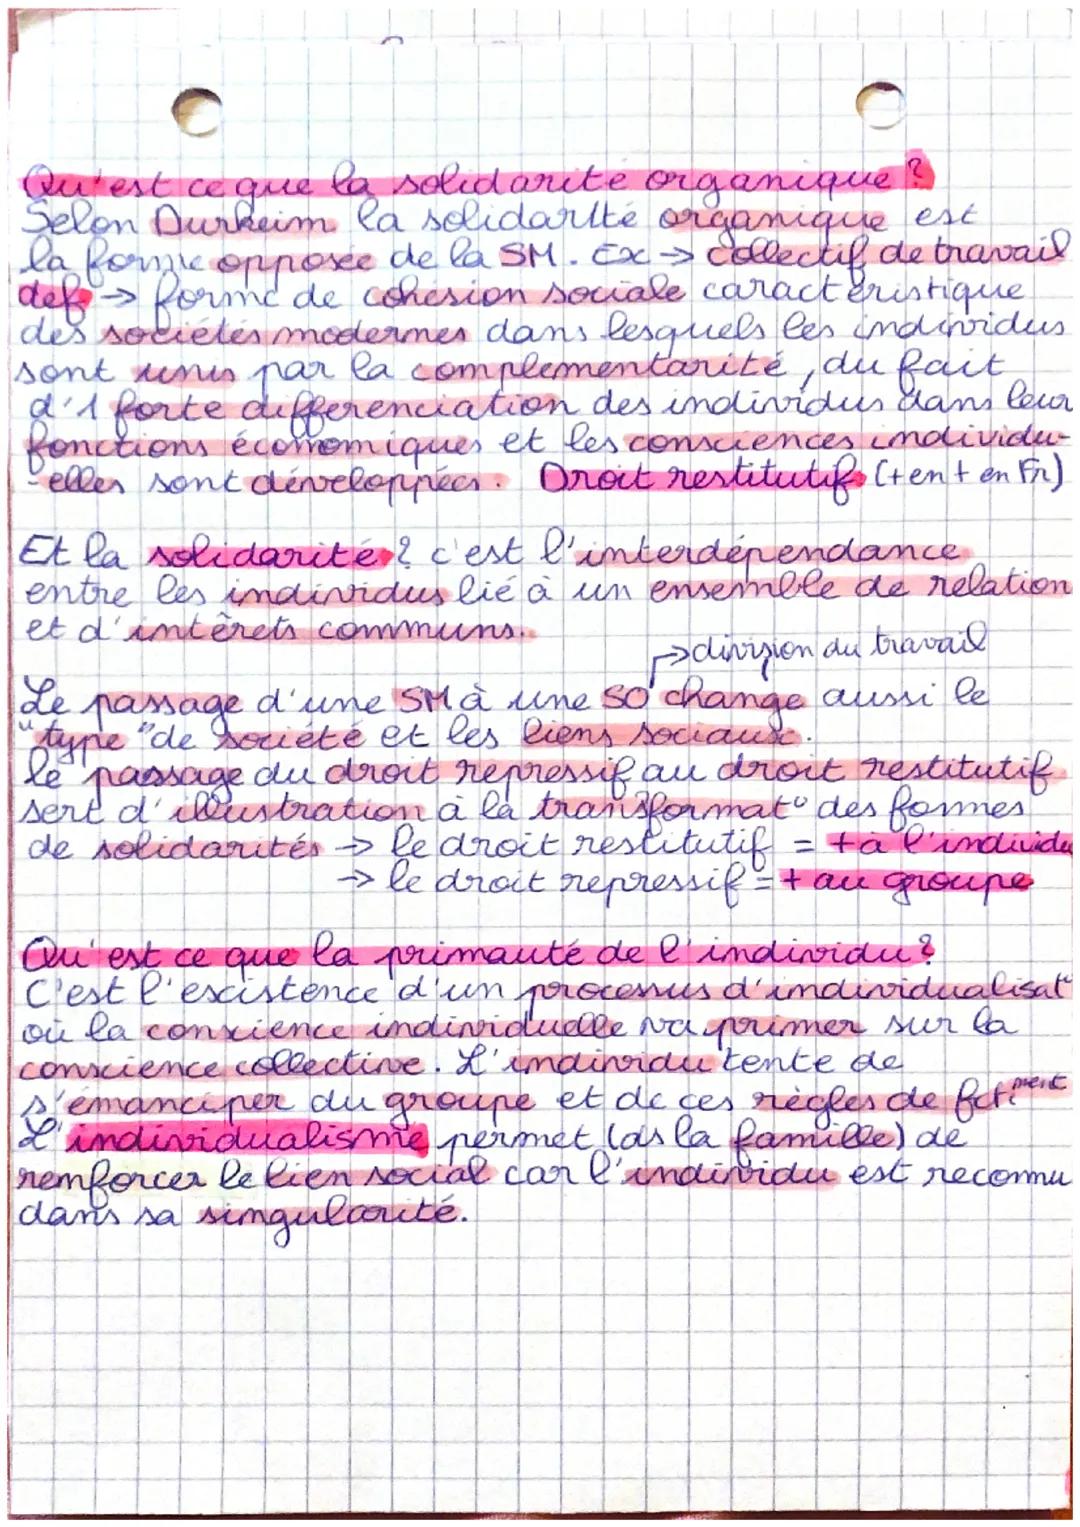 Qu'est ce que la solidarité organique ?
Selon Durkeim la solidarité organique est
la forme opposée de la SM. Ex → collectif de travail
def → forme de cohesion sociale caractéristique
des sociétés modernes dans lesquels les individus
sont unis par la complementarité, du fait
d'1 forte differenciation des individus dans leur
fonctions économiques et les consciences individu-
-elles sont développées. Droit restitutif (+ en + en Fr)
Et la solidarité ? c'est l'interdépendance
entre les individus lié à un ensemble de relation
et d'intêrets communs.
→ division du travail
Le passage d'une SM à une SO change aussi le
"type" de société et les liens sociaux.
le passage du droit repressif au droit restitutif
sert d'illustration à la transformat° des formes
de solidarités → le droit restitutif = + à l'individu
→ le droit repressif = + au groupe
Qu'est ce que la primauté de l'individu ?
C'est l'existence d'un processus d'individualisat°
où la conscience individuelle va primer sur la
conscience collective. L'individu tente de
s'émanciper du groupe et de ces règles de fct°ment
L'individualisme permet (ds la famille) de
renforcer le lien social car l'individu est reconnu
dans sa singularité.